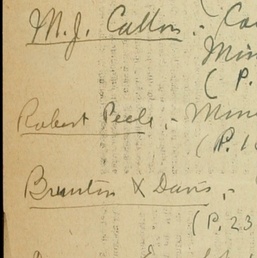 M. J. Callon. - Co
Min
(P.
Robert Peele. - Mine
(P. 1
Brunton & Davis, -
(P. 23